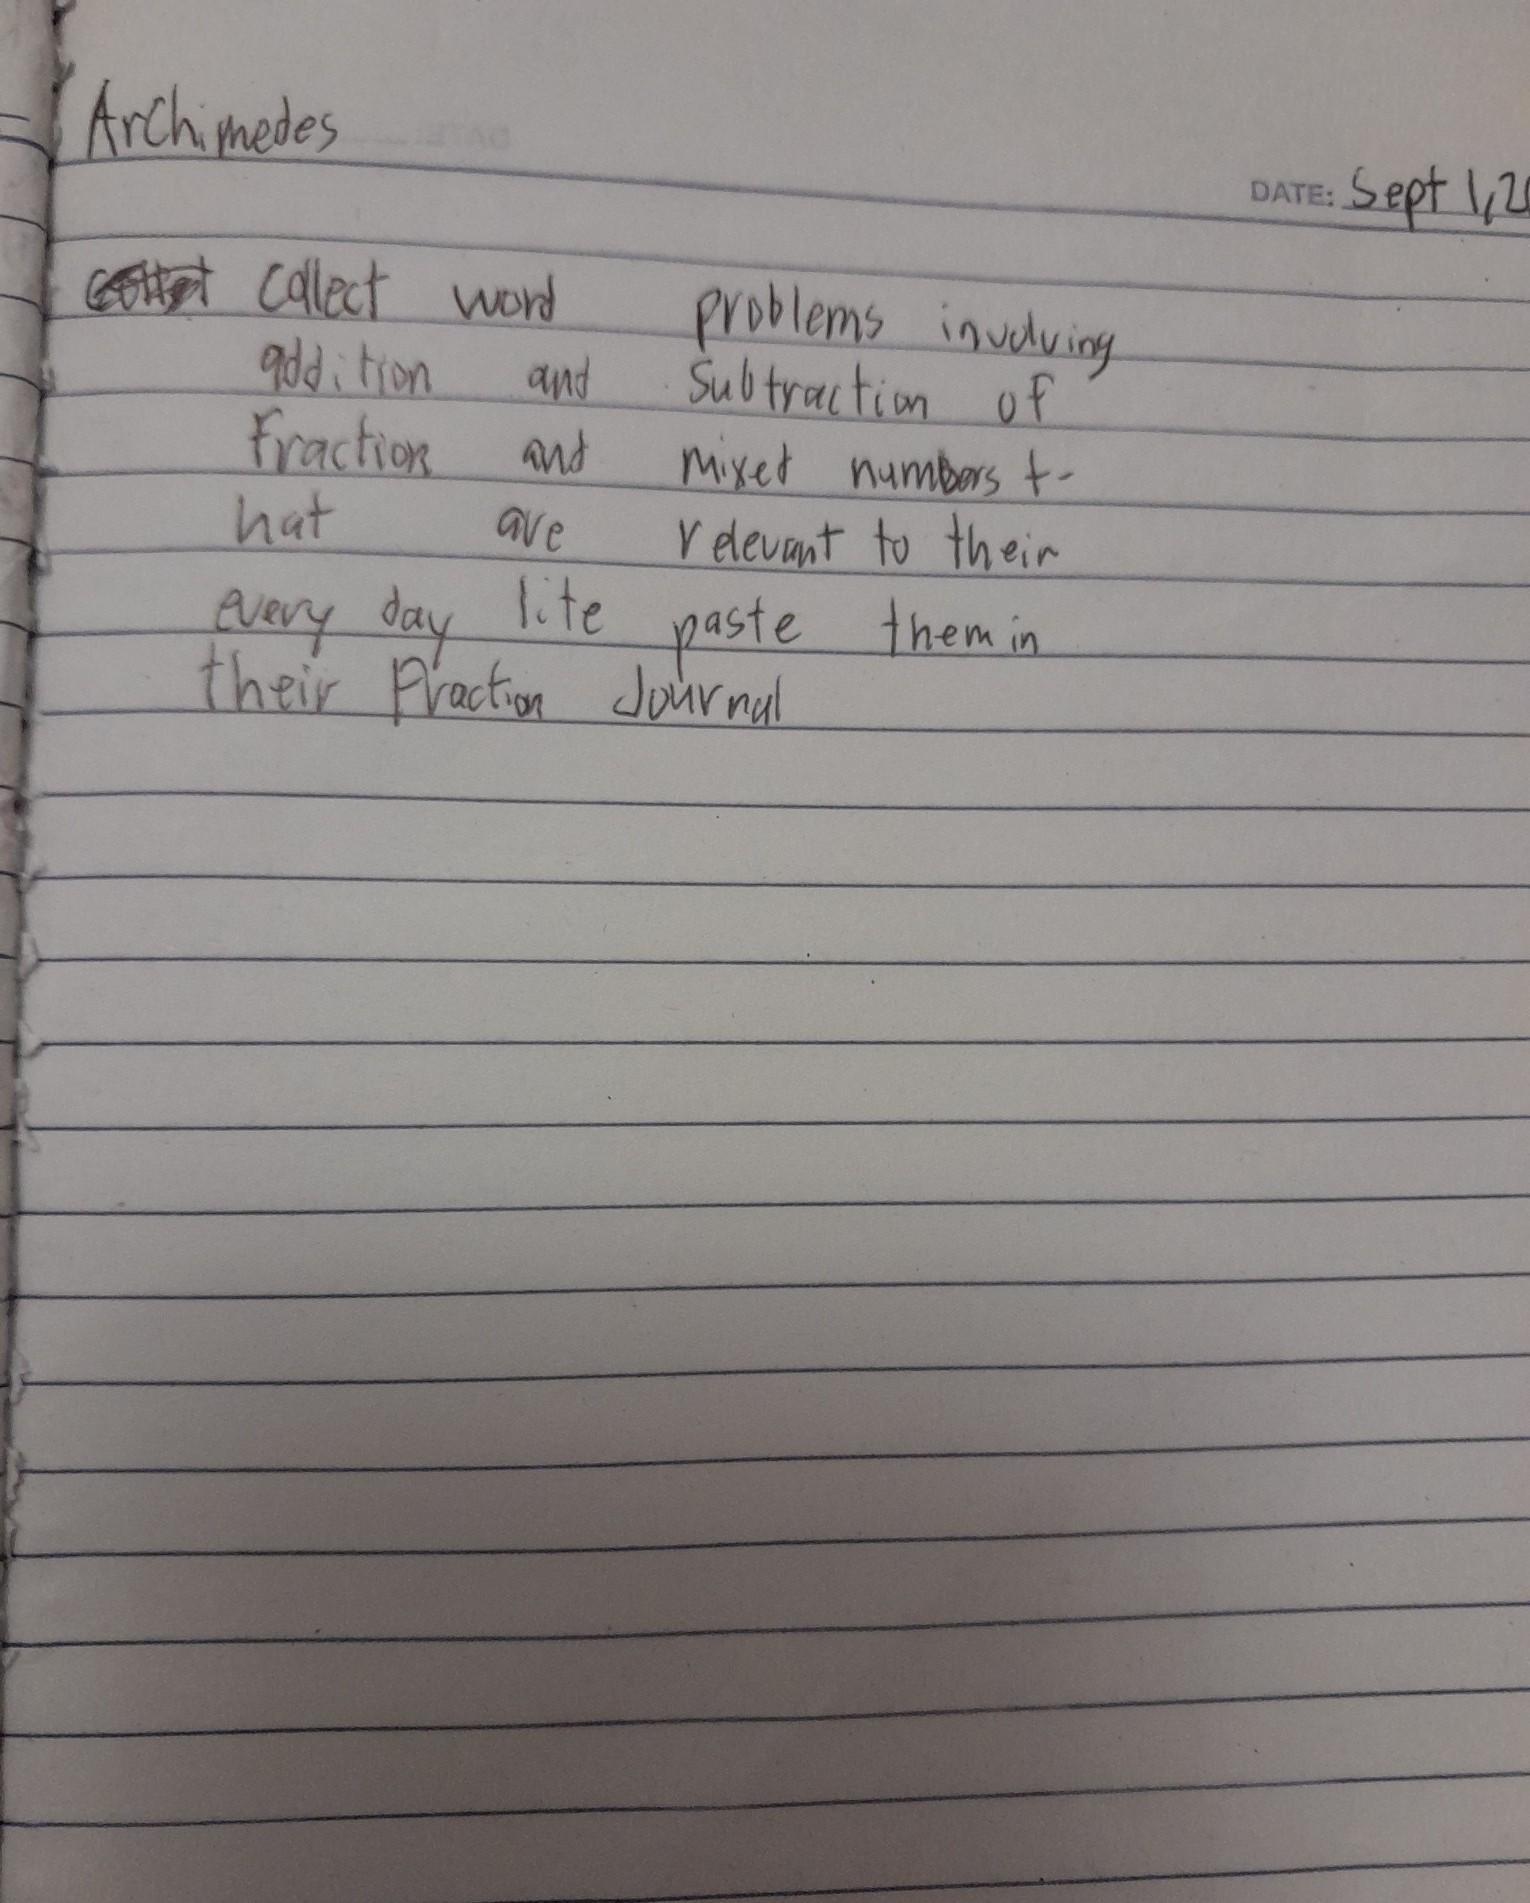 Archimedes
DATE: Sept 1,
collect word problems involving
addition and subtraction of
Fraction and mixed numbers t-
hat are relevant to their
every day life paste them in
their Fraction Journal